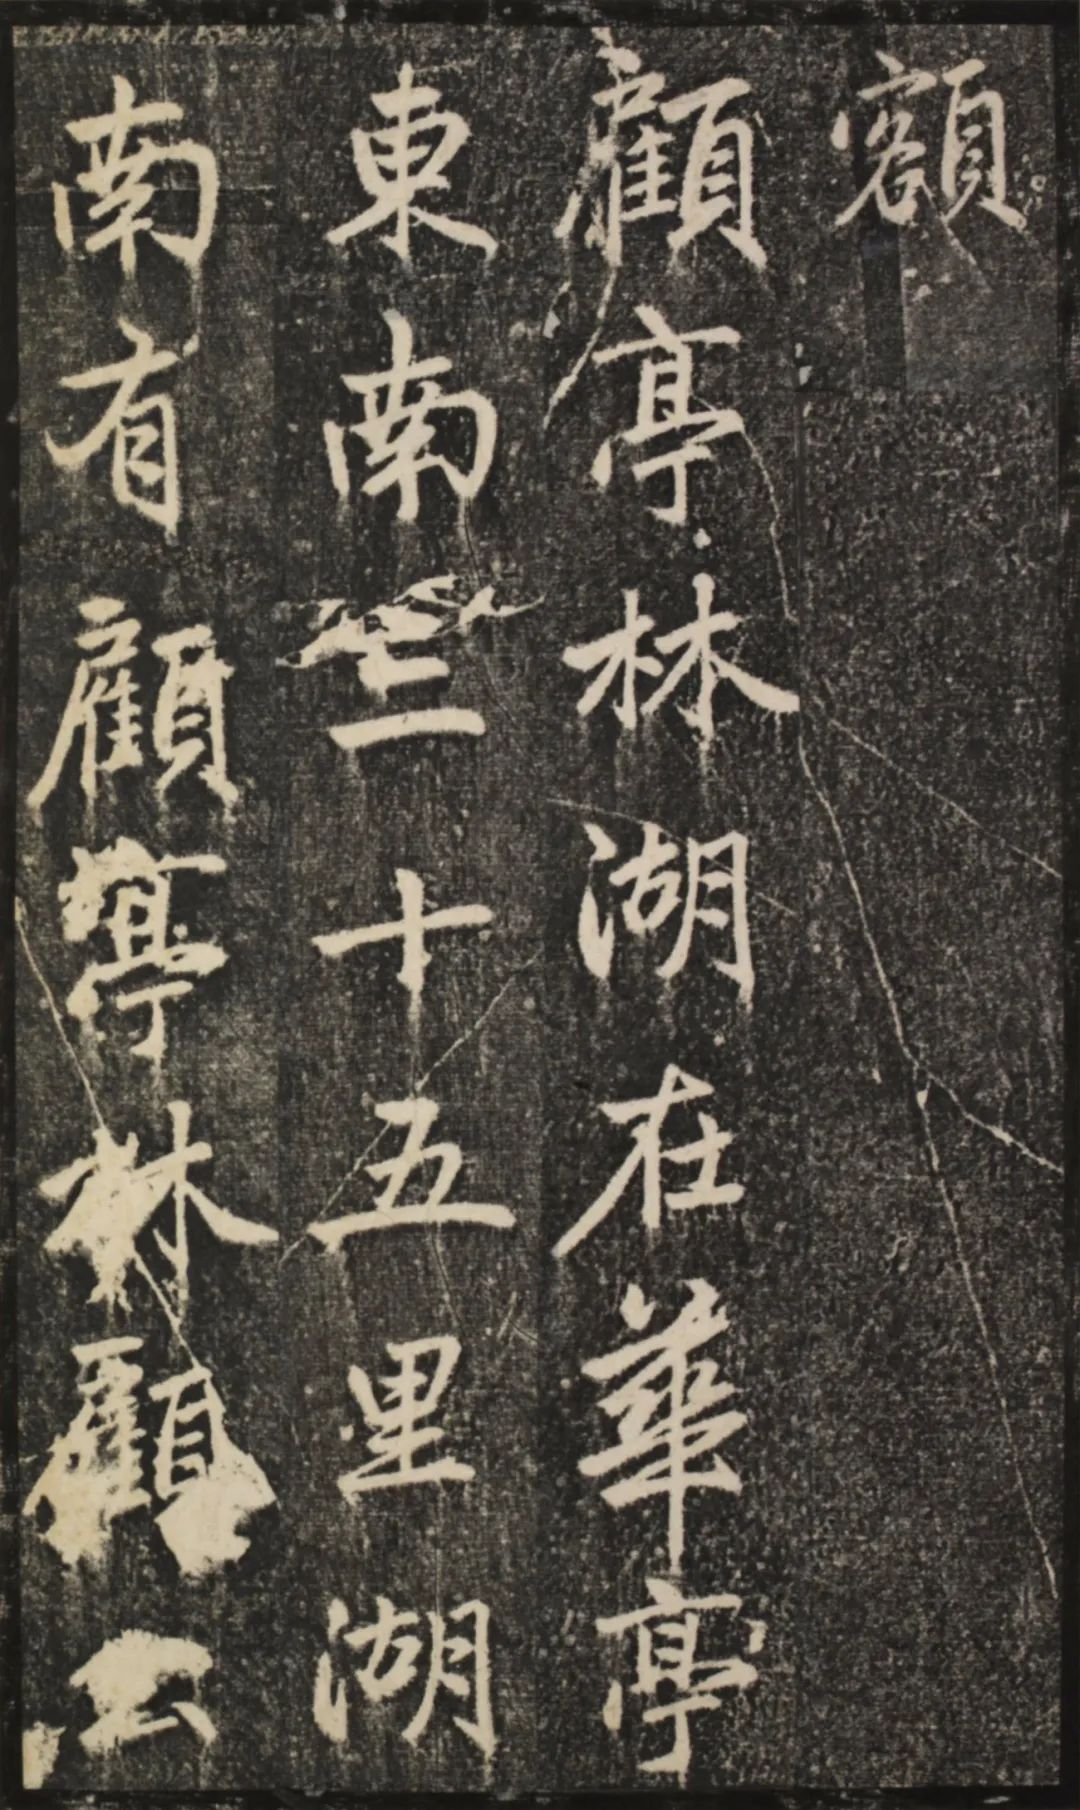 額
顧亭林湖在華亭
東南三十五里湖
南有顧亭林顧公